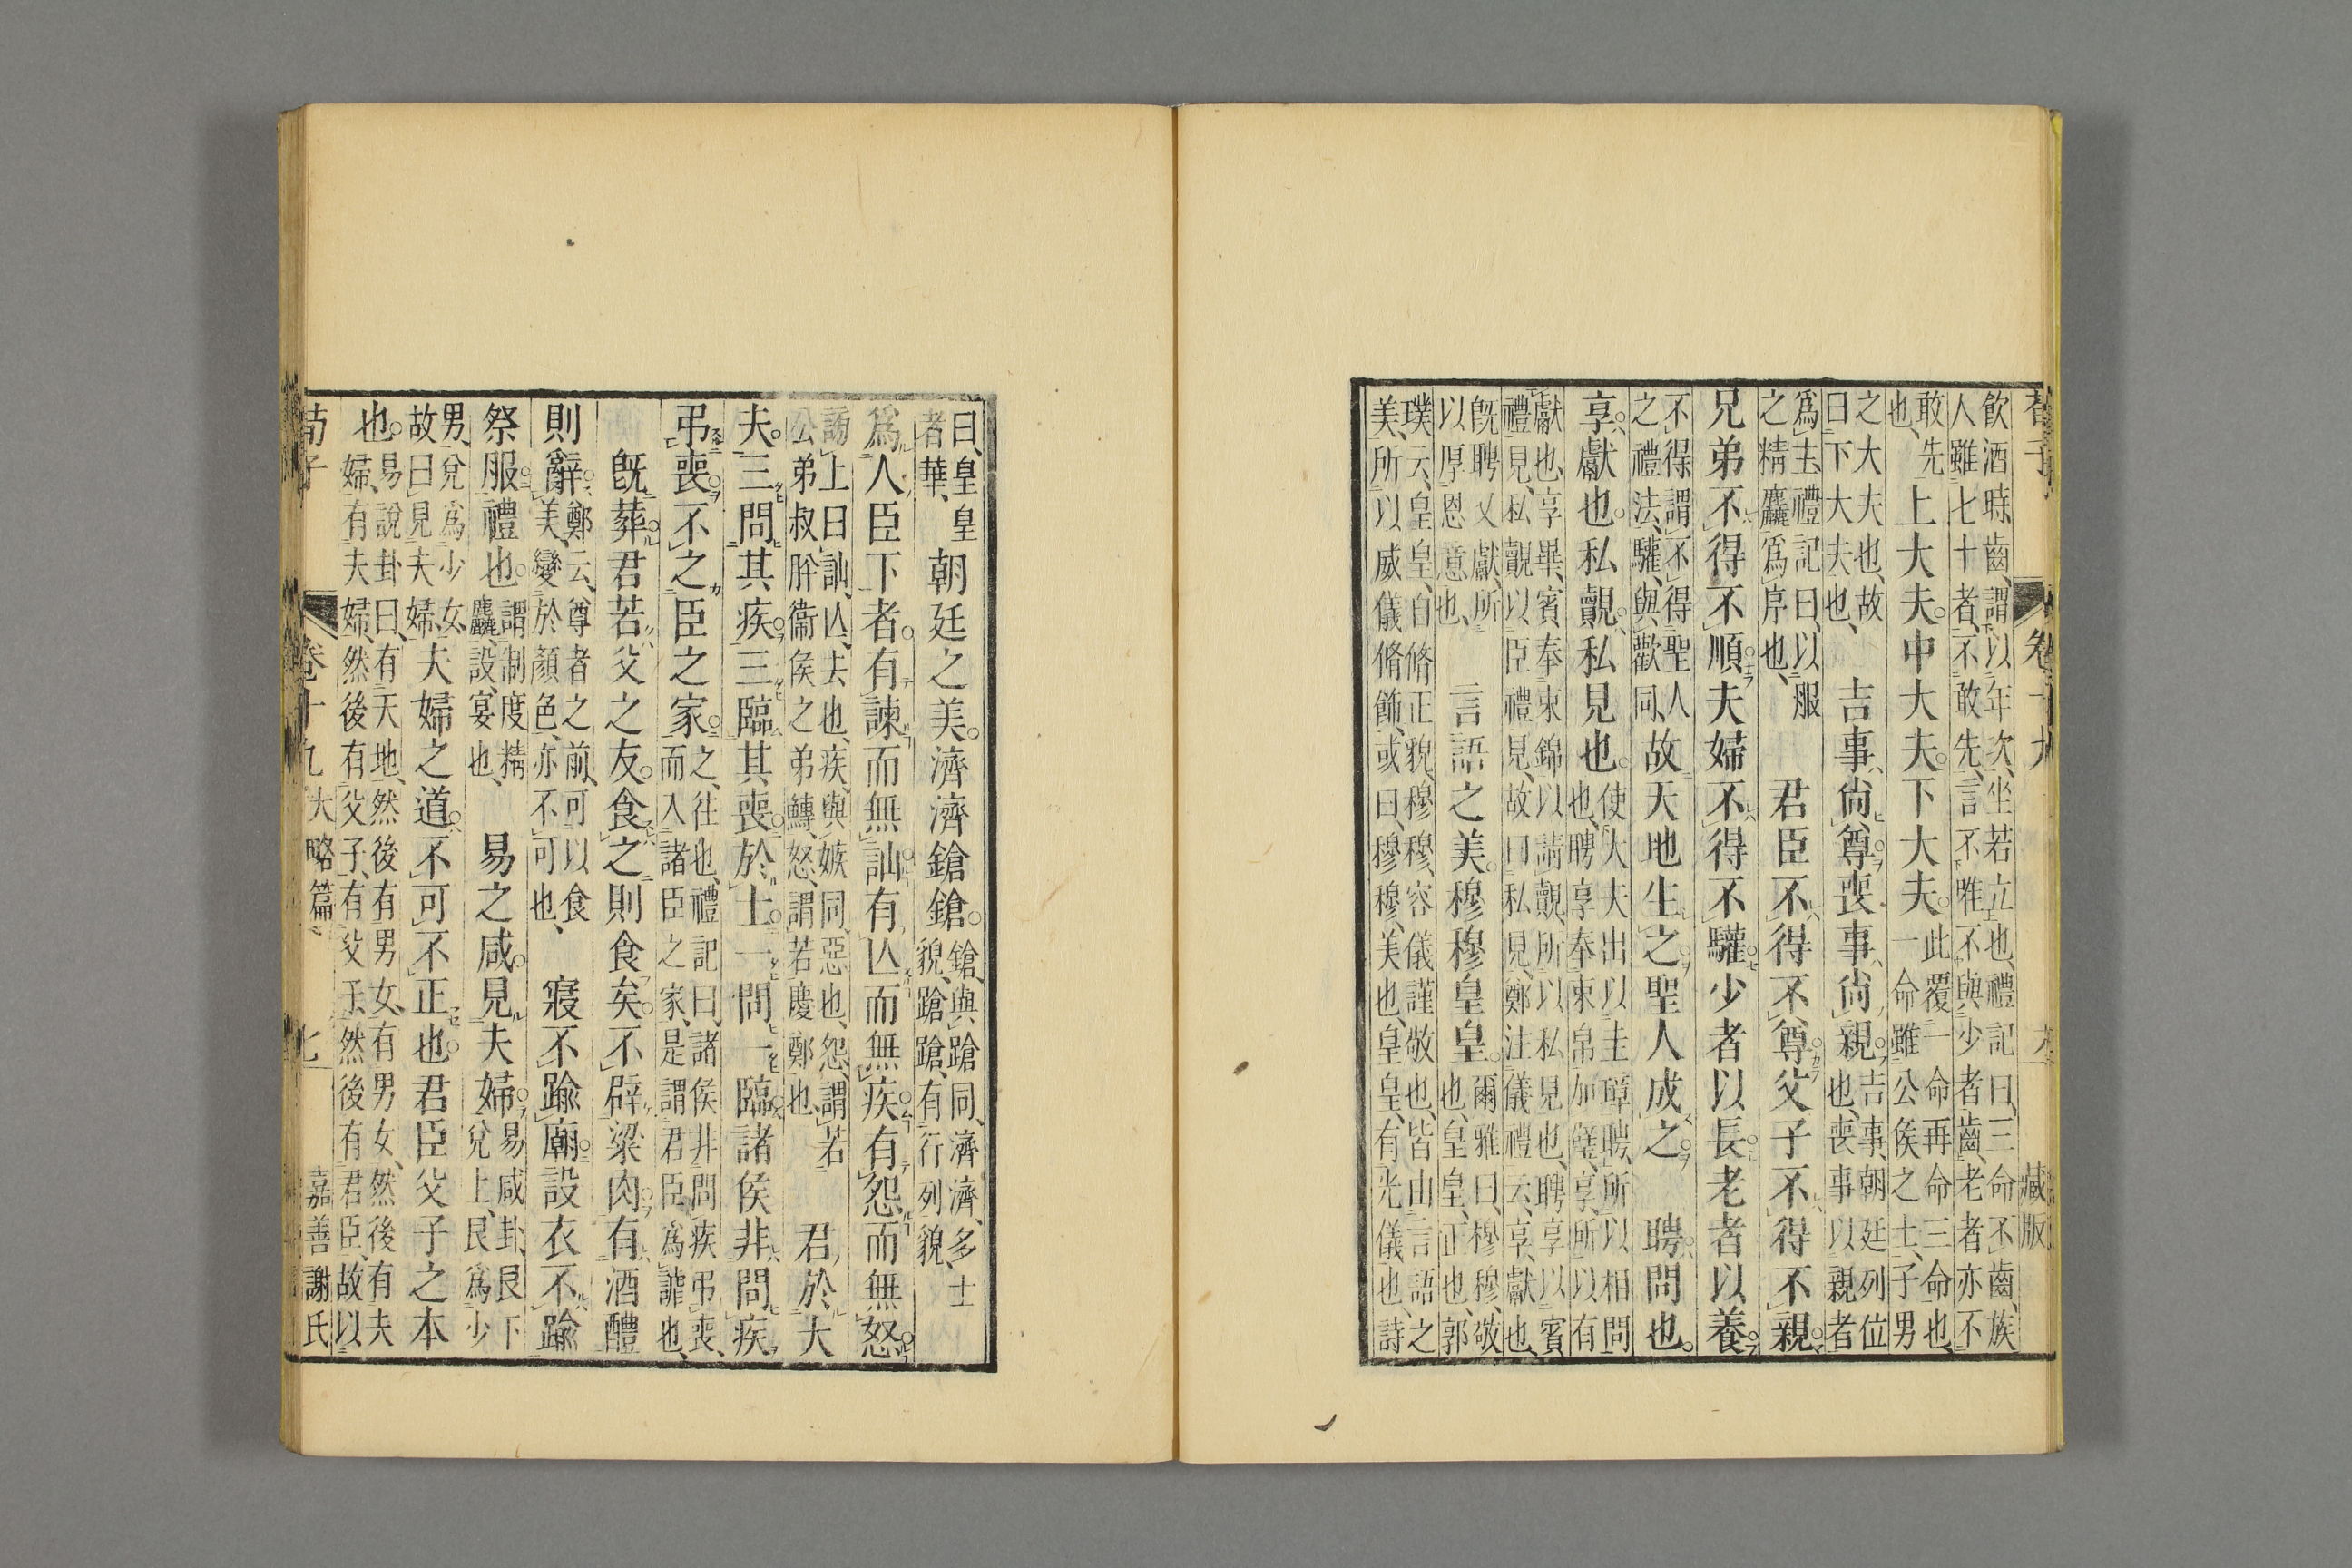 荀子 卷十九 六 藏版
飲酒時齒謂以年次坐若立也、禮記曰、三命不齒、族
人雖七十者、不敢先、言不唯不與少者齒、老者亦不
敢先
也、
上大夫。中大夫。下大夫。
此覆一命再命三命也、
一命雖公侯之士、子男
之大夫也、故
曰下大夫也、
吉事尚尊喪事尚親
吉事、朝廷列位
也、喪事以親者
爲主、禮記曰、以服
之精麤爲序也、
君臣不得不尊父子不得不親
兄弟不得不順夫婦不得不驩少者以長老者以養
不得謂不得聖人
之禮法、驩與歡同、
故天地生之聖人成之
聘問也。
享獻也。私覿私見也。
使大夫出以圭璋聘、所以相問
也、聘享奉束帛加璧、享、所以有
獻也、享畢、賓奉束錦以請覿、所以私見也、聘享以賓
禮見、私覿以臣禮見、故曰私見、鄭注儀禮云、享、獻也、
旣聘又獻、所
以厚恩意也、
言語之美。穆穆皇皇。
爾雅曰、穆穆、敬
也、皇皇、正也、郭
璞云、皇皇、自脩正貌、穆穆、容儀謹敬也、皆由言語之
美、所以威儀脩飾、或曰、穆穆、美也、皇皇、有光儀也、詩
曰、皇皇
者華、
朝廷之美。濟濟鎗鎗。
鎗、與蹌同、濟濟、多士
貌、蹌蹌、有行列貌、
爲人臣下者。有諫而無訕有亡而無疾有怨而無怒
謗上曰訕、亡、去也、疾、與嫉同、惡也、怨、謂若
公弟叔肸、衞侯之弟鱄、怒、謂若慶鄭也、
君於大
夫。三問其疾三臨其喪於士一問一臨諸侯非問疾
弔喪不之臣之家。
之、往也、禮記曰、諸侯非問疾弔喪、
而入諸臣之家、是謂君臣爲謔也、
旣葬君若父之友。食之則食矣。不辟梁肉有酒醴
則辭
鄭云、尊者之前、可以食
美、變於顔色、亦不可也、
寢不踰廟設衣不踰
祭服禮也。
謂制度精
麤、設、宴也、
易之咸見夫婦
易咸卦、艮下
兌上、艮爲少
男、兌爲少女、
故曰見夫婦、
夫婦之道不可不正也。君臣父子之本
也。
易說卦曰、有天地、然後有男女、有男女、然後有夫
婦、有夫婦、然後有父子、有父子、然後有君臣、故以
荀子 卷十九 大略篇 七 嘉善謝氏